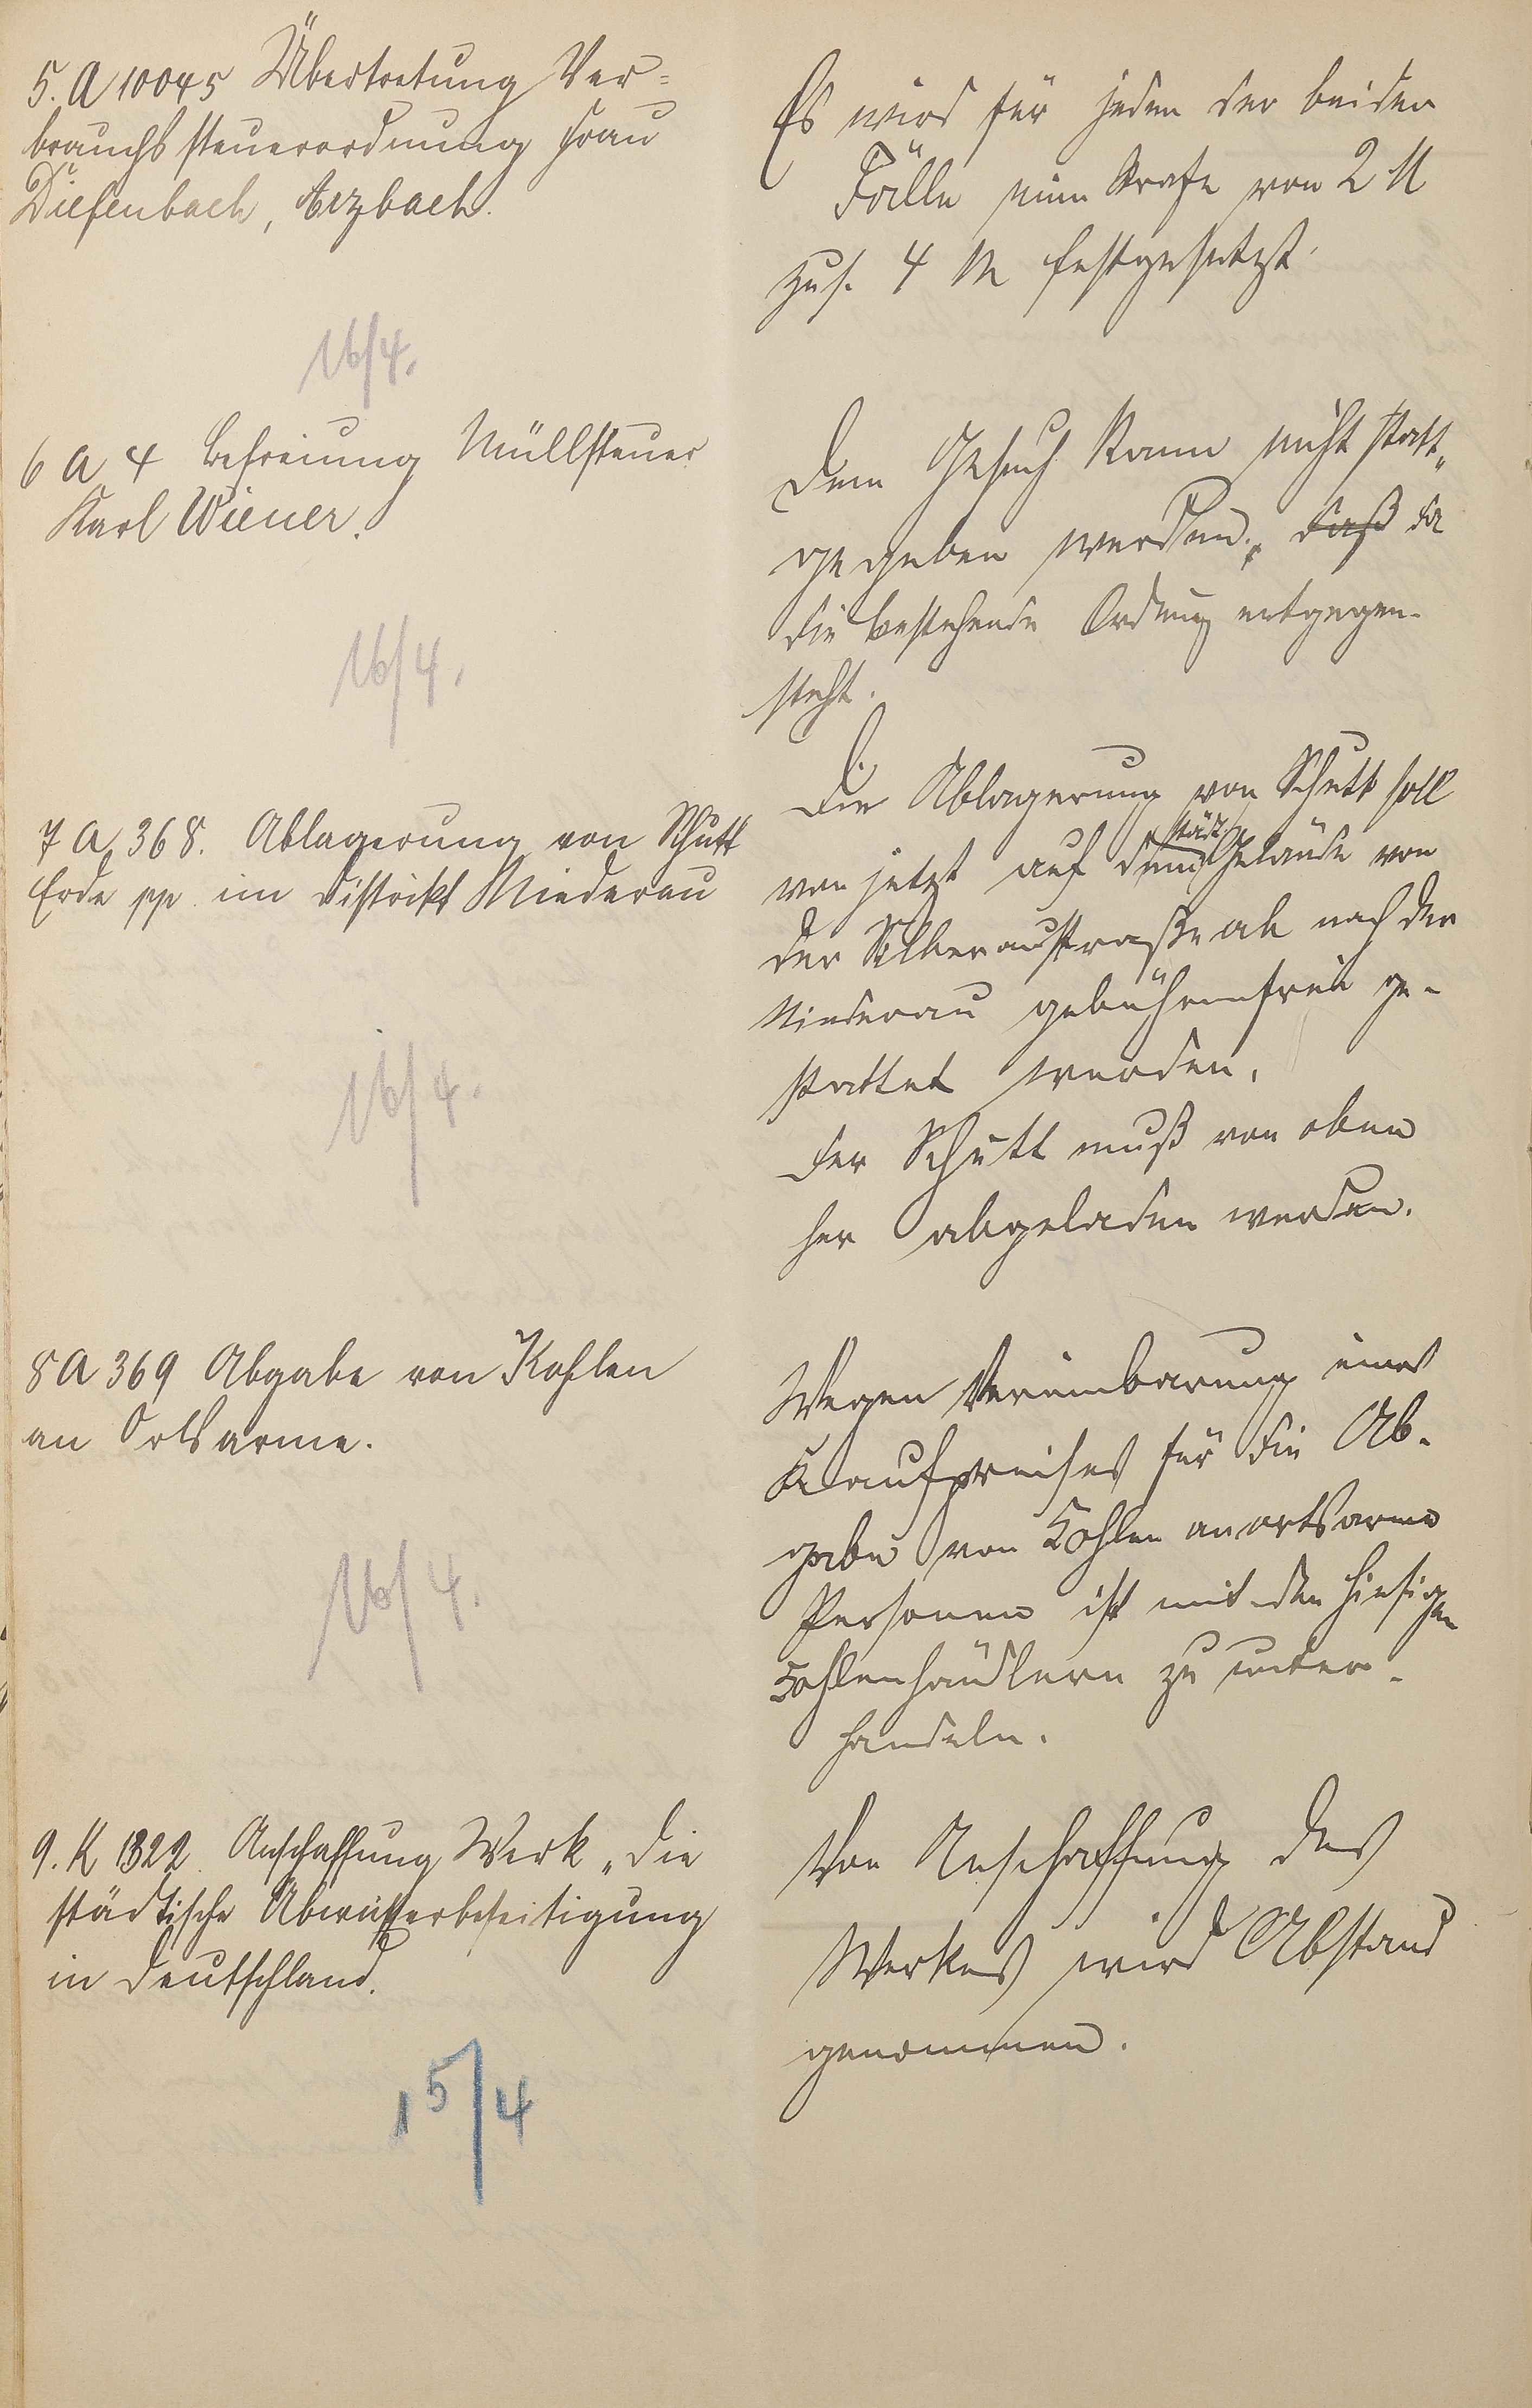 5. A 10045 Übertretung Ver=
brauchssteuerordnung Frau
Diefenbach, Arzbach.
Es wird für jeden der beiden
Fälle eine Strafe von 2 M
zus. 4 M festgesetzt.
16/4.
6 A 4 Befreiung Müllsteuer
Karl Wiener.
Dem Gesuch kann nicht statt„
gegeben werden, daß da
die bestehende Ordnung entgegen-
steht.
16/4.
7 A 368. Ablagerung von Schutt
Erde pp im Distrikt Niederau
Die Ablagerung von Schutt soll
von jetzt auf dem städt. Gelände von
der Silberaustraße ab nach der
Niederau gebührenfrei ge-
stattet werden.
Der Schutt muß von oben
her abgeladen werden.
16/4.
8 A 369 Abgabe von Kohlen
an Ortsarme.
Wegen Vereinbarung eines
Kaufpreises für die Ab-
gabe von Kohlen an ortsarme
Personen ist mit den hiesigen
Kohlenhändlern zu unter-
handeln.
16/4.
9. K 1322. Anschaffung Werk „Die
städtische Abwässerbeseitigung
in Deutschland.
Von Anschaffung des
Werkes wird Abstand
genommen.
15/4